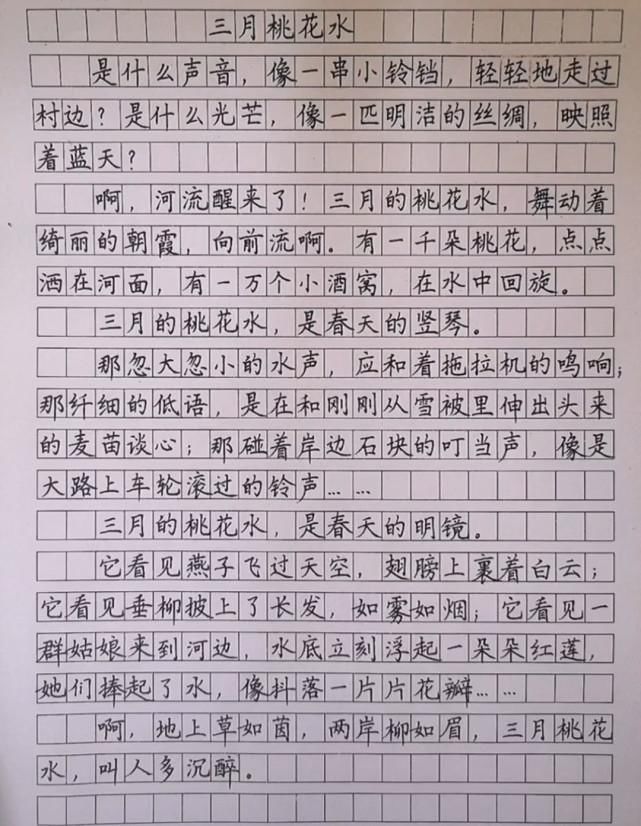 三月桃花水
是什么声音，像一串小铃铛，轻轻地走过
村边？是什么光芒，像一匹明洁的丝绸，映照
着蓝天？
啊，河流醒来了！三月的桃花水，舞动着
绮丽的朝霞，向前流啊。有一千朵桃花，点点
洒在河面，有一万个小酒窝，在水中回旋。
三月的桃花水，是春天的竖琴。
那忽大忽小的水声，应和着拖拉机的鸣响；
那纤细的低语，是在和刚刚从雪被里伸出头来
的麦苗谈心；那碰着岸边石块的叮当声，像是
大路上车轮滚过的铃声……
三月的桃花水，是春天的明镜。
它看见燕子飞过天空，翅膀上裹着白云；
它看见垂柳披上了长发，如雾如烟；它看见一
群姑娘来到河边，水底立刻浮起一朵朵红莲，
她们捧起了水，像抖落一片片花瓣……
啊，地上草如茵，两岸柳如眉，三月桃花
水，叫人多沉醉。